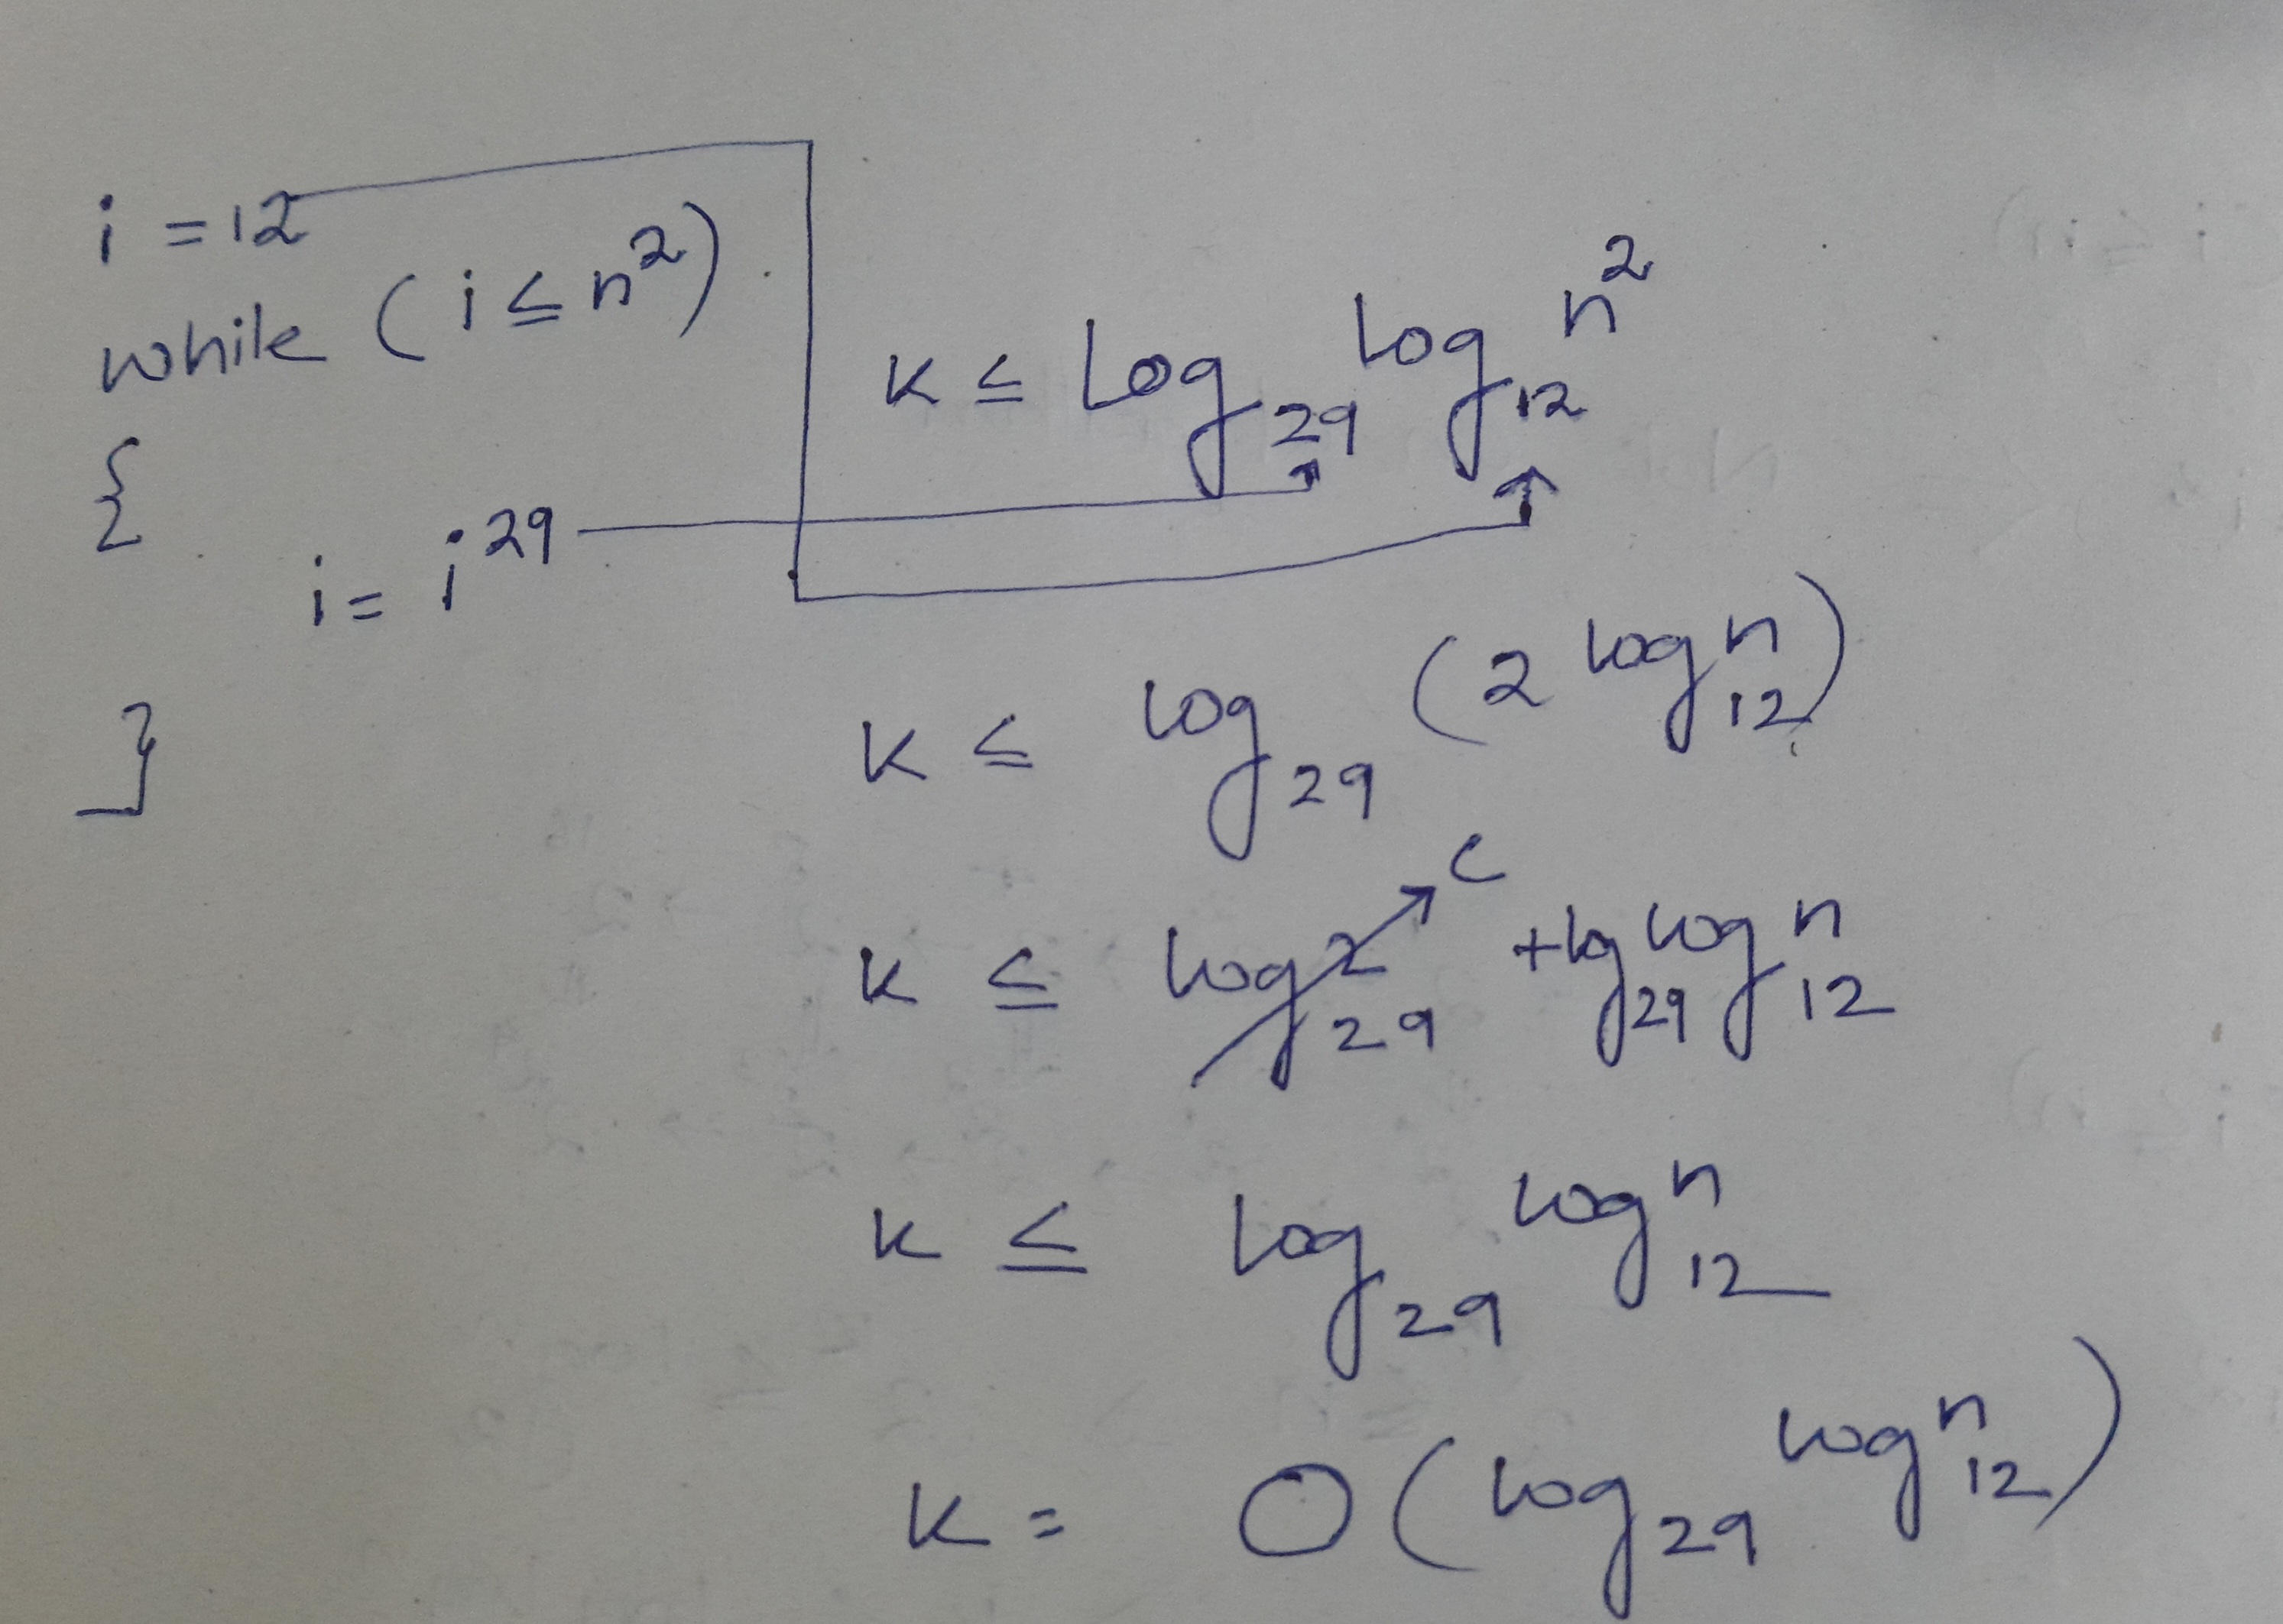 i = 12
while (i ≤ n²)
{
i = i²⁹
}
K ≤ log₂₉ log₁₂ n²
K ≤ log₂₉ (2 log₁₂ n)
K ≤ log₂₉ 2 → c + log₂₉ log₁₂ n
K ≤ log₂₉ log₁₂ n
K = O(log₂₉ log₁₂ n)